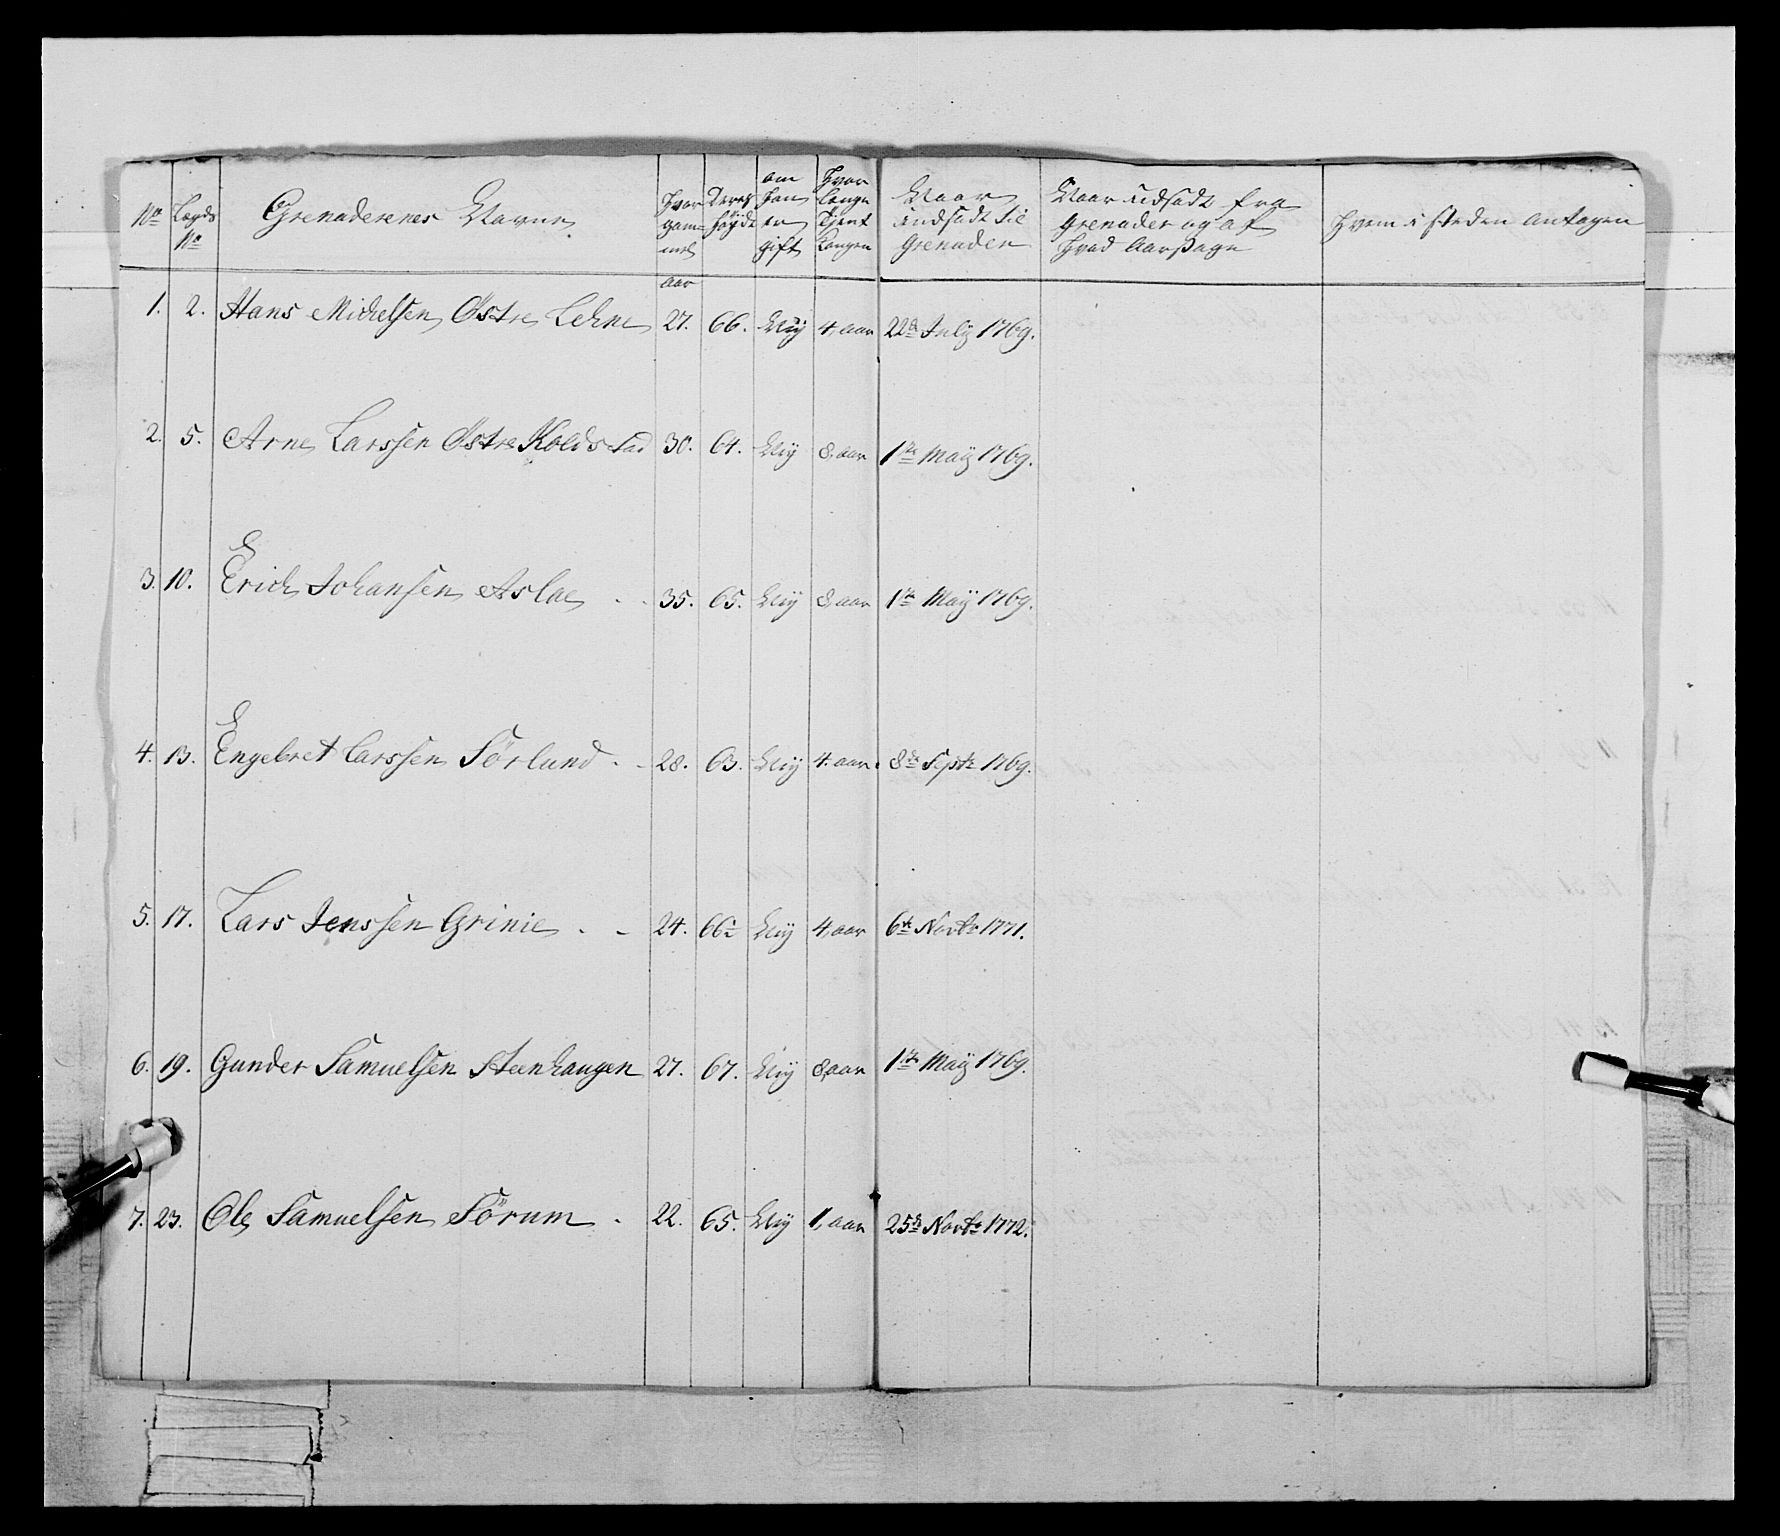 No Lægds No Grenaderenes Navne Hvor gam= mel Deres Høyde om han er gift Hvor længe Tient Kongen Naar indsadt til Grenader Naar udsadt fra Grenader og af Hvad Aarsage Hvem i steden antagen
aar
1. 2. Hans Michelsen Østre Lehne 27. 66. Nÿ 4, aar 22de Julÿ 1769.
2. 5. Arne Larssen Østre Koldstad 30. 64. Nÿ 8, aar 1te Maÿ 1769.
3. 10. Erich Johansen Aslae 35. 65. Nÿ 8, aar 1te Maÿ 1769.
4. 13. Engebret Larssen Sörlund 28. 63. Nÿ 4. aar. 8de Septr 1769.
5. 17. Lars Jenssen Grinie 24. 66 Nÿ 4, aar 6te Novbr 1771.
6. 19. Gunder Samuelsen Steenhaugen 27. 67. Nÿ 8, aar 1te Maÿ 1769.
7. 23. Ole Samuelsen Sörum 22. 65. Nÿ 1, aar 25de Novbr 1772.